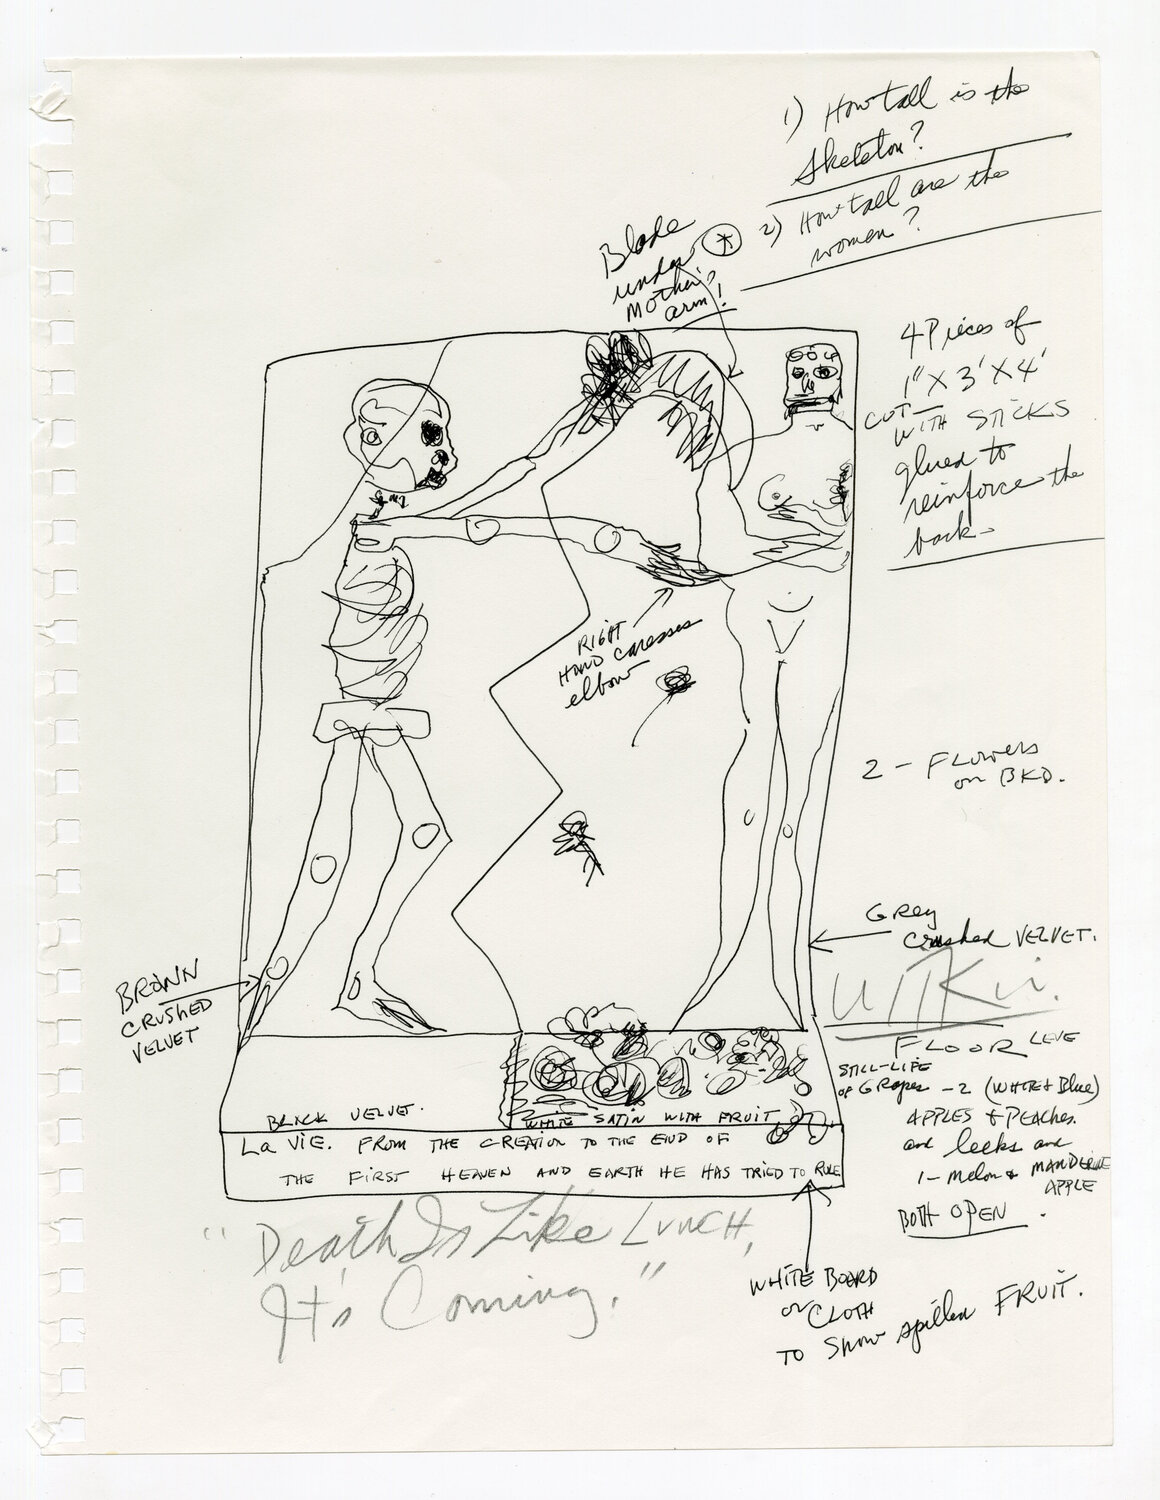 1) How tall is the
Skeleton?
2) How tall are the
women?
Blade
under
Mother's
arm!
4 Pieces of
1" X 3' X 4'
CUT
WITH STICKS
glued to
reinforce the
back-
RIGHT
HAND caresses
elbow
2 - FLOWERS
on BKD.
GREY
crushed VELVET.
BROWN
CRUSHED
VELVET
Witkin.
FLOOR
STILL-LIFE
of GRAPES - 2 (WHITE + Blue)
APPLES + Peaches.
and leeks and
1 - melon +
APPLE
BOTH OPEN.
BLACK VELVET.
WHITE SATIN WITH FRUIT
La VIE. FROM THE CREATION TO THE END OF
THE FIRST HEAVEN AND EARTH HE HAS TRIED TO RULE
"Death Is Like LUNCH,
It's Coming."
WHITE BOARD
or CLOTH
TO Show spilled FRUIT.